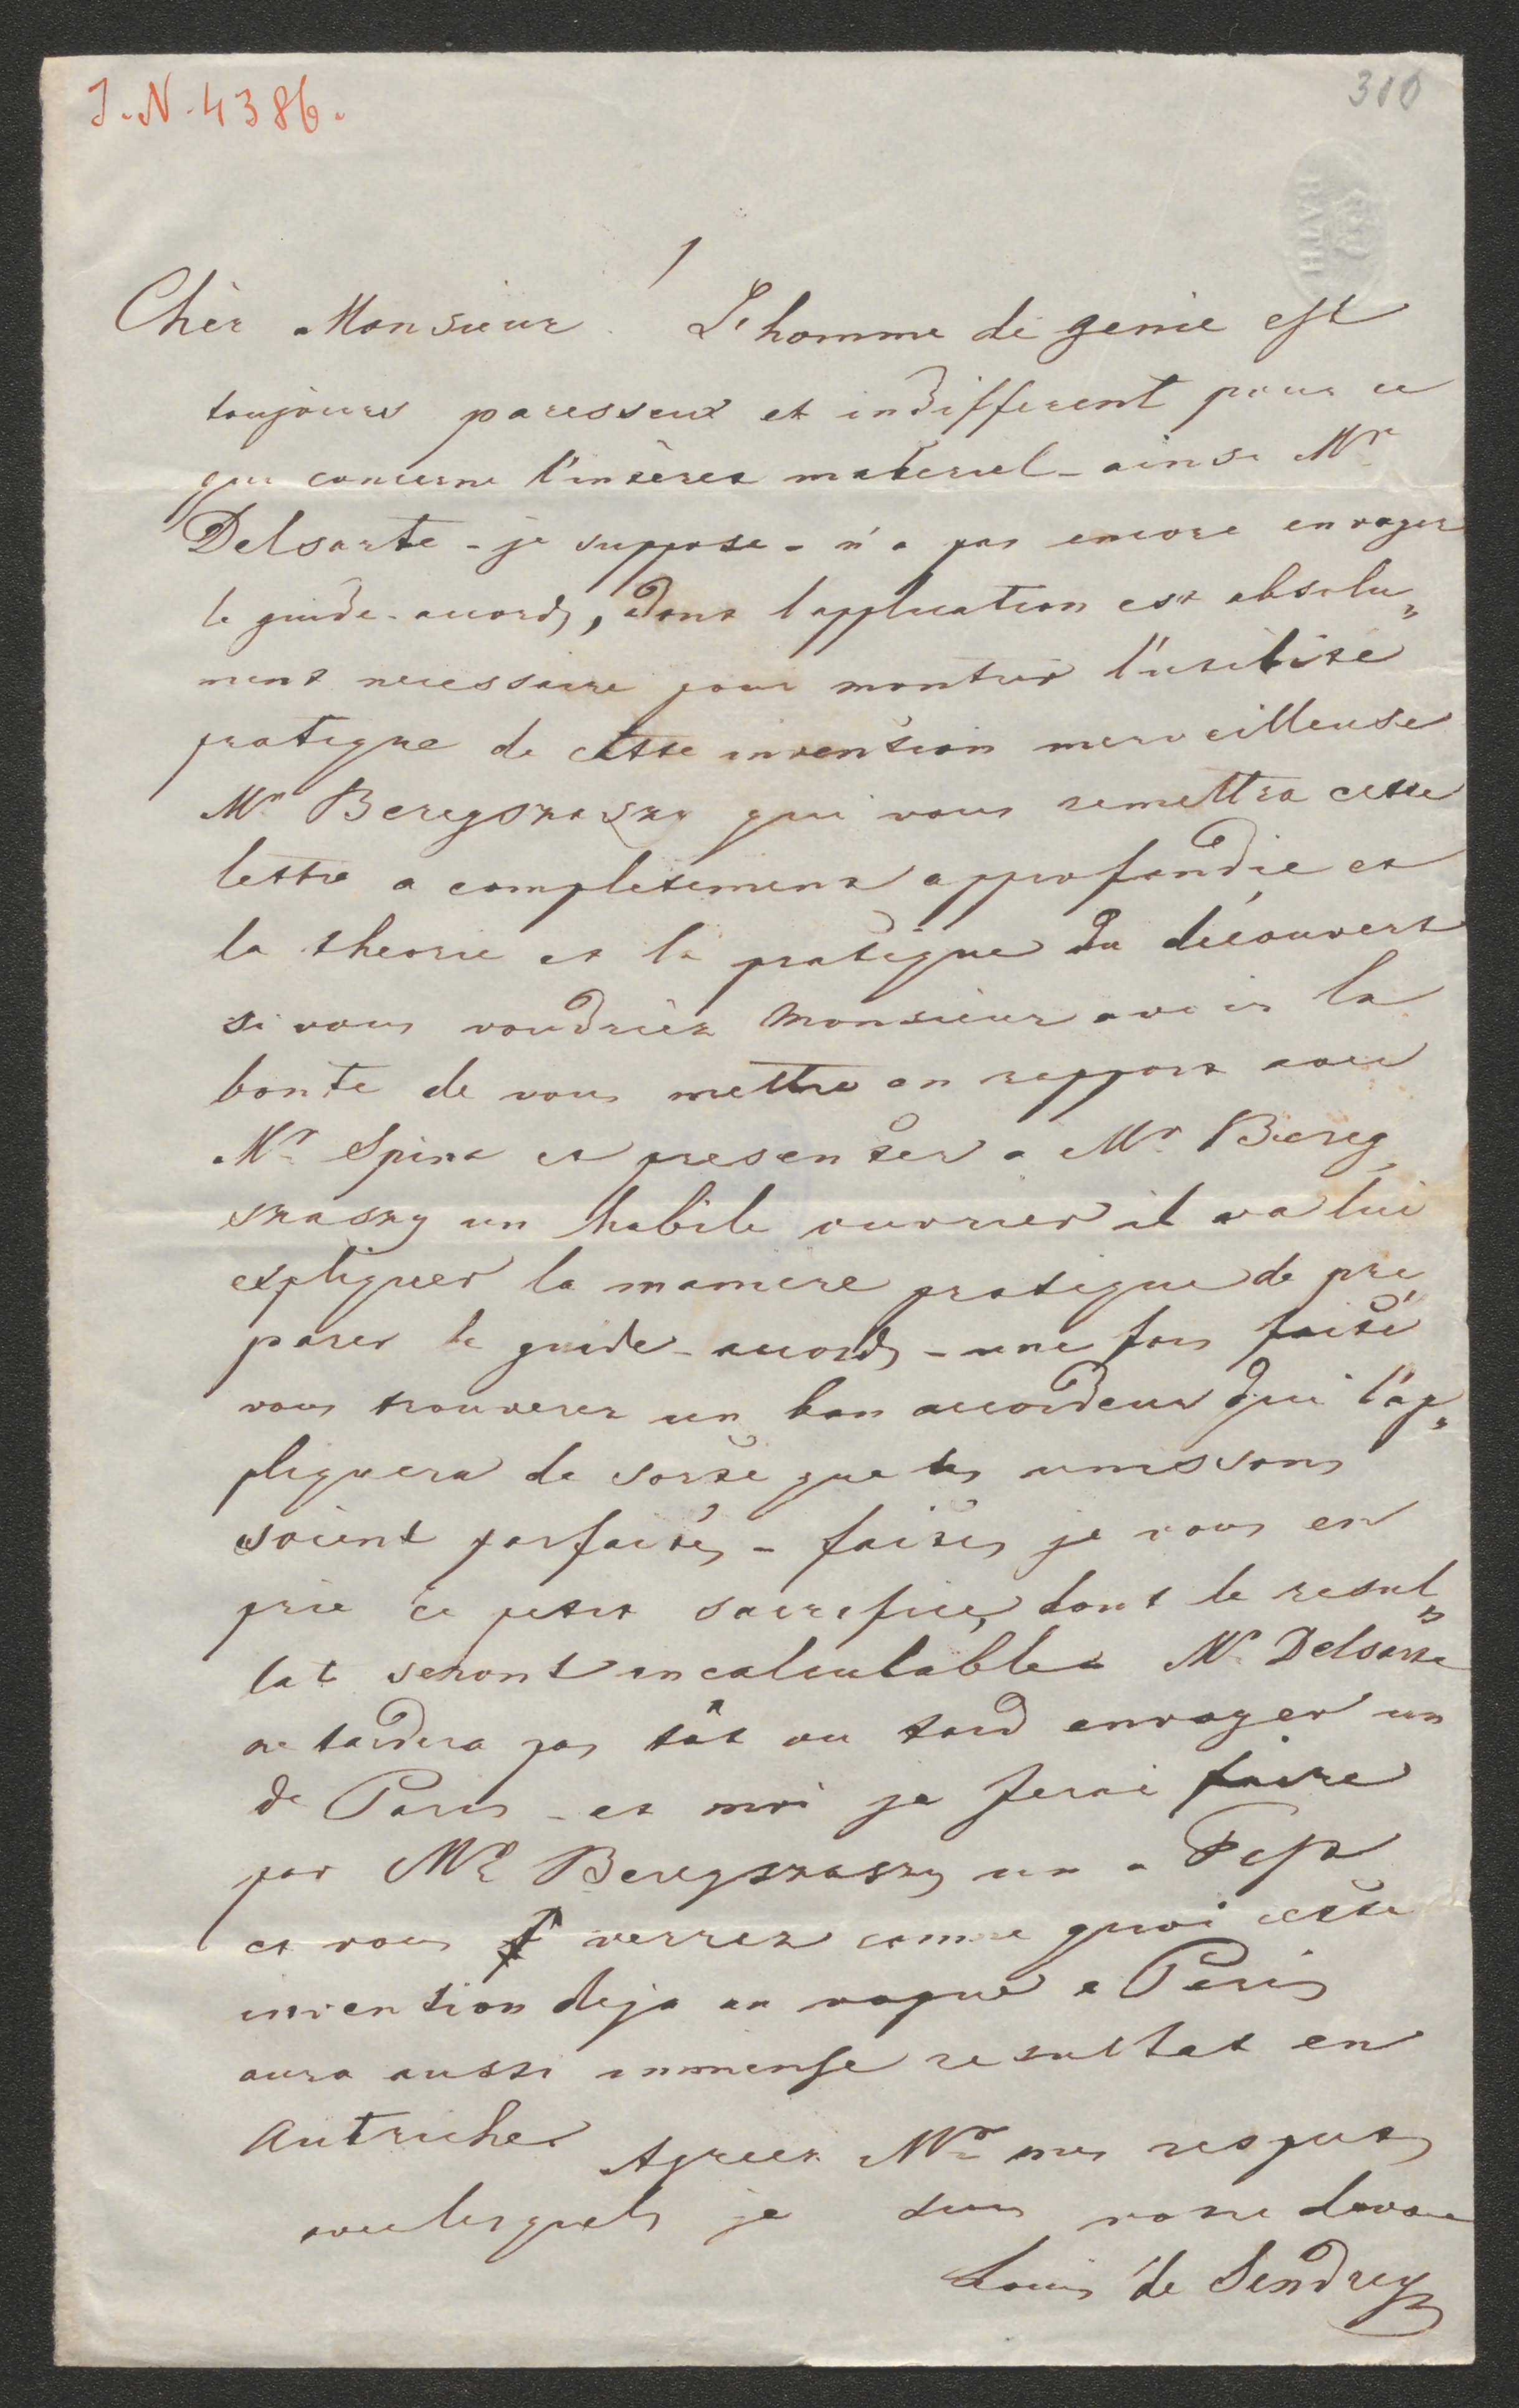 J.N.4386.
310
BATH
Chèr Monsieur ! L'homme de genie est
toujours paresseux et indifferent pour ce
qui concerne l'intèret materiel - ainsi Mr
Delsarte - je suppose - n'a pas encore envoyer
le guide-accords, dont l'application est absolu„
ment necessaire pour montrer l'utilité
pratique de cette invention merveilleuse
Mr Beregszaszy qui vous remettra cette
lettre a completement approfondie et
la theorie et la pratique du découvert
si vous voudriez Monsieur avoir la
bonte de vous mettre en rapport avec
Mr Spina et presenter a Mr Bereg
szaszy un habile ouvrier il va lui
expliquer la maniere pratique de pre
parer le guide-accords - une fois faite
vous trouverez un bon accordeur qui l'ap„
pliquera de sorte que les unissons
soient parfaites - faites je vous en
prie ce petit sacrifice, dont le resul„
tat seront incalculables Mr Delsarte
ne tardera pas tôt ou tard envoyer un
de Paris - et moi je ferai faire
par Mr Beregszaszy un a Pest
et vous verrez comme quoi cette
invention deja en vogue a Paris
aura aussi immense resultat en
Autriche Agreez Mr mes respects
avec lesquels je suis votre devoue
Louis de Sendrey